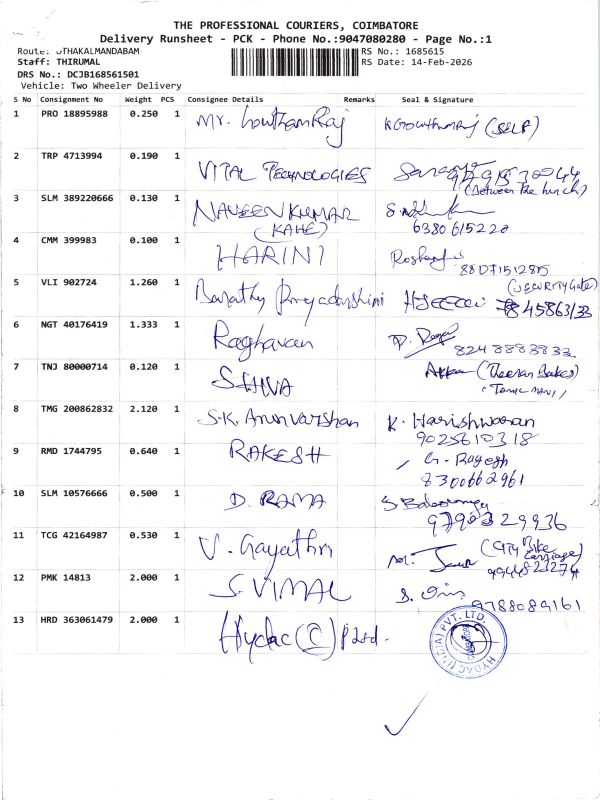 THE PROFESSIONAL COURIERS, COIMBATORE
Delivery Runsheet - PCK - Phone No.:9047080280 - Page No.:1
Route: OTHAKALMANDABAM RS No.: 1685615
Staff: THIRUMAL RS Date: 14-Feb-2026
DRS No.: DCJB168561501
Vehicle: Two Wheeler Delivery
S No Consignment No Weight PCS Consignee Details Remarks Seal & Signature
1 PRO 18895988 0.250 1 Mr. GouthamRaj (SELF)
2 TRP 4713994 0.190 1 VITAL TECHNOLOGIES
(Between the lunch)
3 SLM 389220666 0.130 1 NAVEEN KUMAR
(KAHE) 6380615220
4 CMM 399983 0.100 1 HARINI
(SECURITY Gate)
5 VLI 902724 1.260 1 Barathy Priyadarshini
6 NGT 40176419 1.333 1 Raghavan
8248888833
7 TNJ 80000714 0.120 1 SHIVA
8 TMG 200862832 2.120 1 S.K. Arun varshan K. Harishwaran
9025610318
9 RMD 1744795 0.640 1 RAKESH G. Ragesh
8300662961
10 SLM 10576666 0.500 1 D. RAMA
9790329936
11 TCG 42164987 0.530 1 V. Gayathri
12 PMK 14813 2.000 1 S. VIMAL
9788089161
13 HRD 363061479 2.000 1 Hydac (I) P Ltd.
HYDAC (INDIA) PVT. LTD.